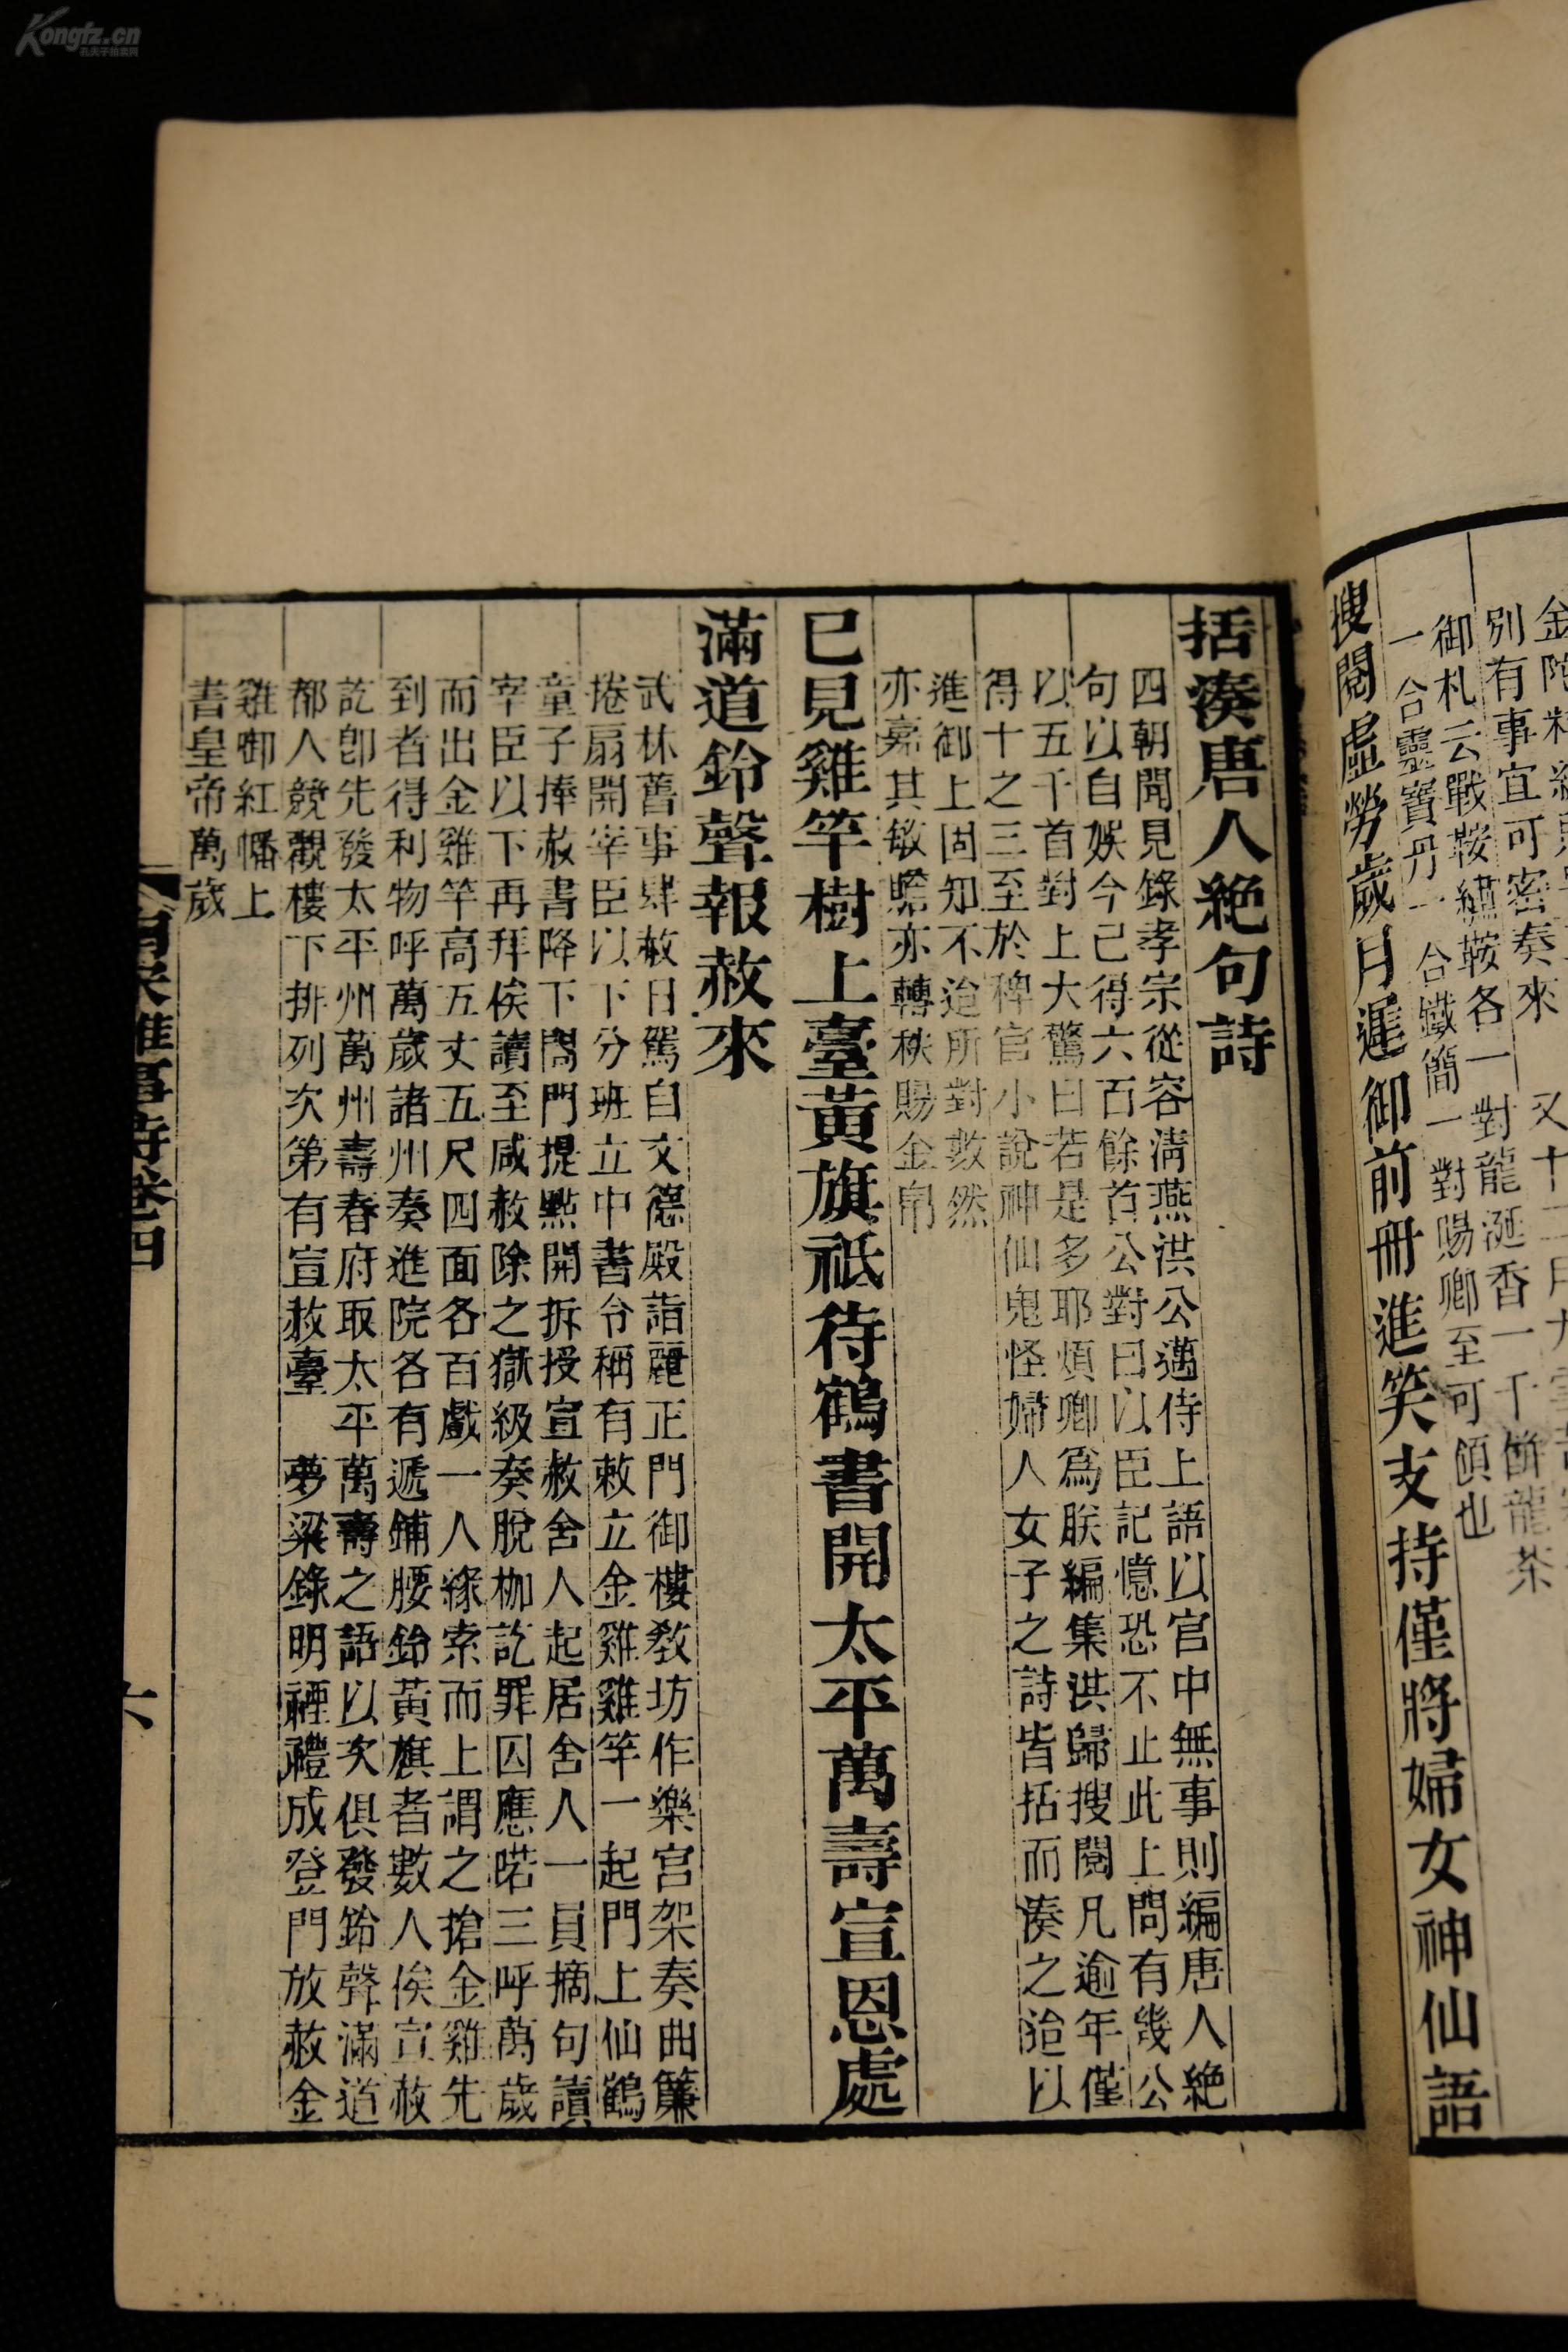 Kongfz.cn
孔夫子拍卖网
別有事宜可密奏來
御札云戰鞍繡鞍各一對龍涎香一千餅龍茶
一合靈寶丹一合鐵簡一對賜卿至可領也
搜閱虛勞歲月遲御前冊進笑支持僅將婦女神仙語
括湊唐人絶句詩
四朝聞見錄孝宗從容淸燕洪公邁侍上語以官中無事則編唐人絶
句以自娛今已得六百餘首公對曰以臣記憶恐不止此上問有幾公
以五千首對上大驚曰若是多耶煩卿爲朕編集洪歸搜閱凡逾年僅
得十之三至於稗官小說神仙鬼怪婦人女子之詩皆括而湊之迨以
進御上固知不迨所對數然
亦嘉其敏贍亦轉秩賜金帛
已見雞竿樹上臺黃旗祇待鶴書開太平萬壽宣恩處
滿道鈴聲報赦來
武林舊事肆赦日駕自文德殿詣麗正門御樓敎坊作樂宮架奏曲簾
捲扇開宰臣以下分班立中書令稱有敕立金雞雞竿一起門上仙鶴
童子捧赦書降下閤門提點開拆授宣赦舍人起居舍人一員摘句讀
宰臣以下再拜俟讀至咸赦除之獄級奏脫枷訖罪囚應喏三呼萬歲
而出金雞竿高五丈五尺四面各百戲一人緣索而上謂之搶金雞先
到者得利物呼萬歲諸州奏進院各有遞鋪腰鈴黃旗者數人俟宣赦
訖卽先發太平州萬州壽春府取太平萬壽之語以次俱發鈴聲滿道
都人競觀樓下排列次第有宣赦臺 夢粱錄明禋禮成登門放赦金
雞啣紅幡上
書皇帝萬歲
南宋雜事詩卷四
六